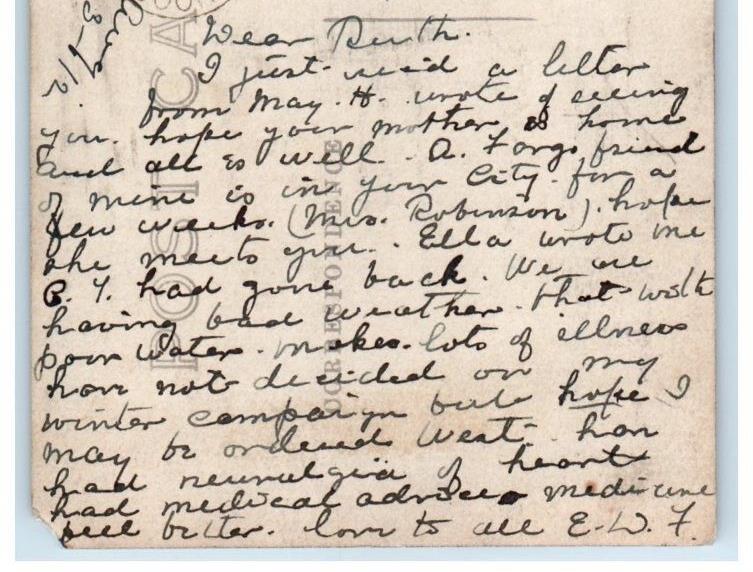 Aug
Dear Ruth.
I just rec'd a letter
from May. H. wrote of seeing
you. hope your mother is home
and all is well. A. Fargo friend
of mine is in your City. for a
few weeks. (Mrs. Robinson). hope
she meets you. Ella wrote me
had gone back. We are
having bad weather. that with
poor water. makes. lots of illness
have not decided on my
winter campaign but hope I
may be ordered West. have
had neuralgia of heart
had medical advice medicine
feel better. love to all E. W. F.
POST CA
CORRESPONDENCE